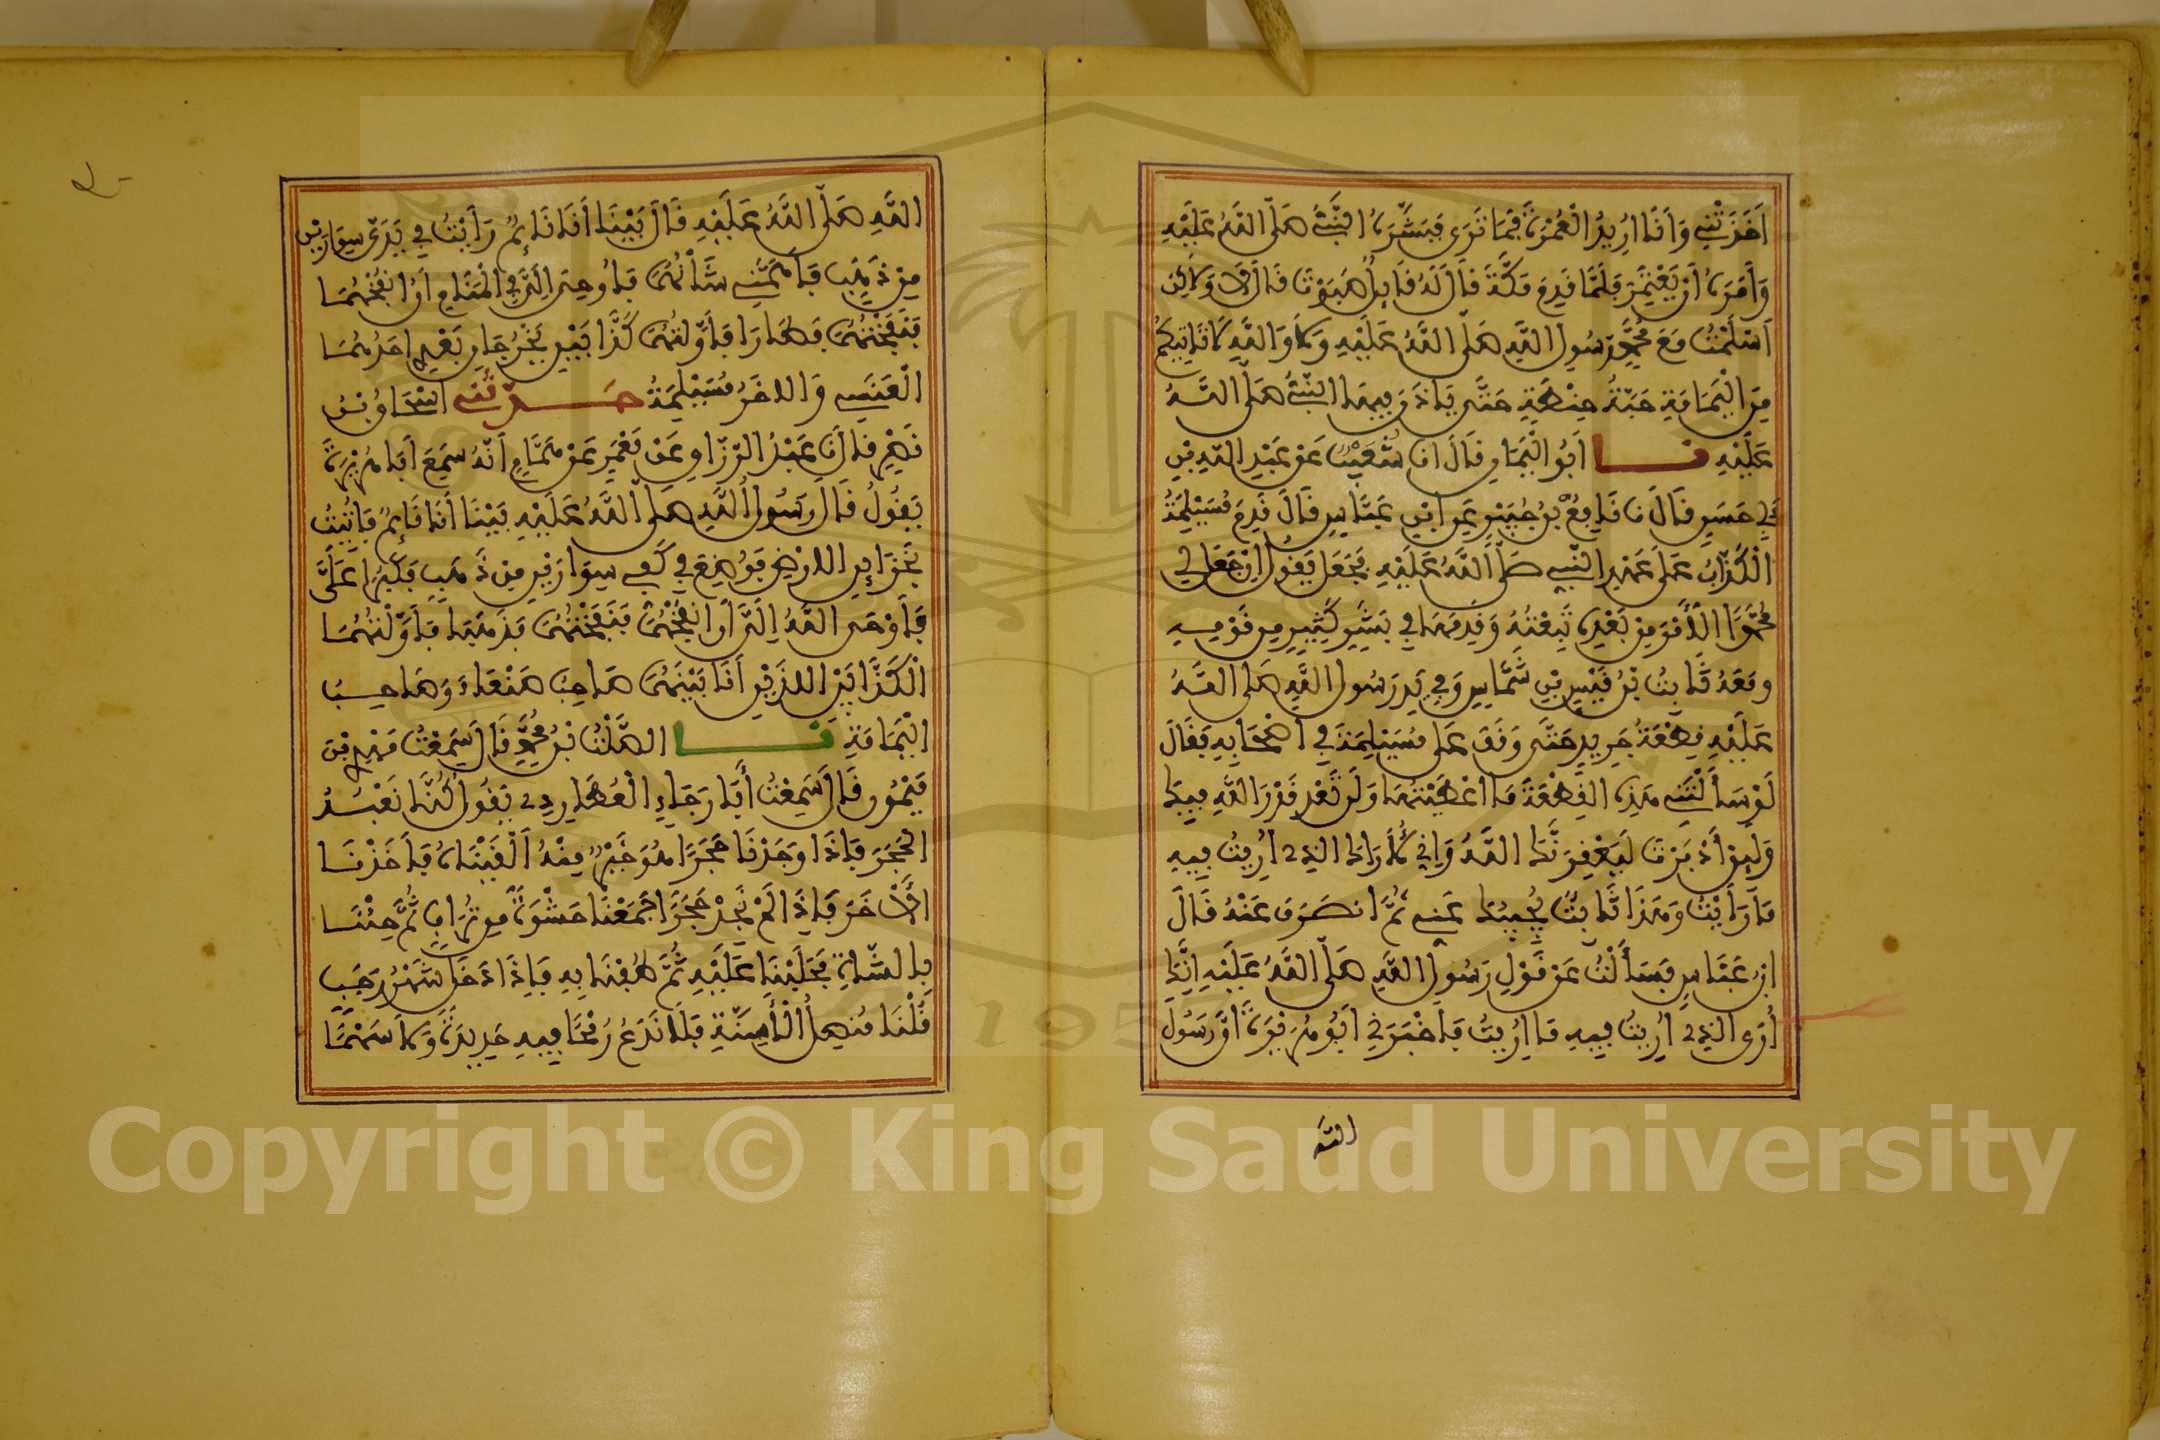 أَخَذَتْنِي وَأَنَا أُرِيدُ الْعُمْرَةَ فَمَا تَرَى فَبَشَّرَهُ النَّبِيُّ صَلَّى اللَّهُ عَلَيْهِ
وَأَمَرَهُ أَنْ يَعْتَمِرَ فَلَمَّا قَدِمَ مَكَّةَ قَالَ لَهُ قَائِلٌ صَبَوْتَ قَالَ لَا وَلَاكِنْ
أَسْلَمْتُ مَعَ مُحَمَّدٍ رَسُولِ اللَّهِ صَلَّى اللَّهُ عَلَيْهِ وَلَا وَاللَّهِ لَا تَاتِيكُمْ
مِنَ الْيَمَامَةِ حَبَّةُ حِنْطَةٍ حَتَّى يَاذَنَ فِيهَا النَّبِيُّ صَلَّى اللَّهُ
عَلَيْهِ نا أَبُو الْيَمَانِ قَالَ انا شُعَيْبٌ عَنْ عَبْدِ اللَّهِ بْنِ
أَبِي حُسَيْنٍ قَالَ نا نَافِعُ بْنُ جُبَيْرٍ عَنِ ابْنِ عَبَّاسٍ قَالَ قَدِمَ مُسَيْلِمَةُ
الْكَذَّابُ عَلَى عَهْدِ النَّبِيِّ صَلَّى اللَّهُ عَلَيْهِ فَجَعَلَ يَقُولُ إِنْ جَعَلَ لِي
مُحَمَّدٌ الْأَمْرَ مِنْ بَعْدِهِ تَبِعْتُهُ وَقَدِمَهَا فِي بَشَرٍ كَثِيرٍ مِنْ قَوْمِهِ
وَمَعَهُ ثَابِتُ بْنُ قَيْسِ بْنِ شَمَّاسٍ وَفِي يَدِ رَسُولِ اللَّهِ صَلَّى اللَّهُ
عَلَيْهِ قِطْعَةُ جَرِيدٍ حَتَّى وَقَفَ عَلَى مُسَيْلِمَةَ فِي أَصْحَابِهِ فَقَالَ
لَوْ سَأَلْتَنِي هَذِهِ الْقِطْعَةَ مَا أَعْطَيْتُكَهَا وَلَنْ تَعْدُ قَدَرَ اللَّهِ فِيكَ
وَلَئِنْ أَدْبَرْتَ لَيَعْقِرَنَّكَ اللَّهُ وَإِنِّي لَأُرَاكَ الَّذِي أُرِيتُ فِيهِ
مَا رَأَيْتُ وَهَذَا ثَابِتٌ يُجِيبُكَ عَنِّي ثُمَّ انْصَرَفَ عَنْهُ قَالَ
ابْنُ عَبَّاسٍ فَسَأَلْتُ عَنْ قَوْلِ رَسُولِ اللَّهِ صَلَّى اللَّهُ عَلَيْهِ إِنَّكَ
أُرَى الَّذِي أُرِيتُ فِيهِ مَا أُرِيتُ فَأَخْبَرَنِي أَبُو هُرَيْرَةَ أَنَّ رَسُولَ
الله
اللَّهِ صَلَّى اللَّهُ عَلَيْهِ قَالَ بَيْنَا أَنَا نَائِمٌ رَأَيْتُ فِي يَدَيَّ سِوَارَيْنِ
مِنْ ذَهَبٍ فَأَهَمَّنِي شَأْنُهُمَا فَأُوحِيَ إِلَيَّ فِي الْمَنَامِ أَنِ انْفُخْهُمَا
فَنَفَخْتُهُمَا فَطَارَا فَأَوَّلْتُهُمَا كَذَّابَيْنِ يَخْرُجَانِ بَعْدِي أَحَدُهُمَا
الْعَنَسِي وَالْآخَرُ مُسَيْلِمَةُ حَدَّثَنِي إِسْحَاقُ بْنُ
نَصْرٍ قَالَ نَا عَبْدُ الرَّزَّاقِ عَنْ مَعْمَرٍ عَنْ هَمَّامٍ أَنَّهُ سَمِعَ أَبَا هُرَيْرَةَ
يَقُولُ قَالَ رَسُولُ اللَّهِ صَلَّى اللَّهُ عَلَيْهِ بَيْنَا أَنَا نَائِمٌ فَأُتِيتُ
بِخَزَائِنِ الْأَرْضِ فَوُضِعَ فِي كَفِّي سِوَارَيْنِ مِنْ ذَهَبٍ فَكَبُرَا عَلَيَّ
فَأَوْحَى اللَّهُ إِلَيَّ أَنِ انْفُخْهُمَا فَنَفَخْتُهُمَا فَذَهَبَا فَأَوَّلْتُهُمَا
الْكَذَّابَيْنِ الَّذَيْنِ أَنَا بَيْنَهُمَا صَاحِبَ صَنْعَاءَ وَصَاحِبُ
الْيَمَامَةِ نَا الصَّلْتُ بْنُ مُحَمَّدٍ قَالَ سَمِعْتُ مَهْدِيَ بْنَ
مَيْمُونٍ قَالَ سَمِعْتُ أَبَا رَجَاءٍ الْعُطَارِدِي يَقُولُ كُنَّا نَعْبُدُ
الْحَجَرَ فَإِذَا وَجَدْنَا حَجَرًا هُوَ خَيْرٌ مِنْهُ أَلْقَيْنَاهُ فَأَخَذْنَا
الْأَخَرَ فَإِذَا لَمْ نَجِدْ حَجَرًا جَمَعْنَا حَشْوَةً مِنْ تُرَابٍ ثُمَّ جِئْنَا
بِالشَّاةِ فَحَلَبْنَا عَلَيْهِ ثُمَّ طُفْنَا بِهِ فَإِذَا دَخَلَ شَهْرُ رَجَبٍ
قُلْنَا مُنْصِلُ الْأَسِنَّةِ فَلَا نَدَعُ رُمْحًا فِيهِ حَدِيدَةٌ وَلَا سَهْمًا
Copyright © King Saud University
1957